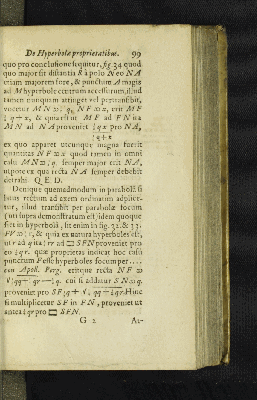 De Hyperbolæ proprietatibus. 99
quo pro conclusione sequitur, fig 34 quod
quo major fit distantia R à polo N eo NA
etiam majorem fore, & punctum A magis
ad M hyperbole centrum accessurum, illud
tamen nunquam attinget vel pertransibit,
vocetur MN ∞ ½q, NF ∞ x, erit MF
½q + x, & quia est ut MF ad FN ita
MN ad NA proveniet ½qx pro NA,
½q+x
ex quo apparet utcunque magna fuerit
quantitas NF ∞ x quod tamen in omni
casu MN ∞ ½q. semper major erit NA,
utpote ex qua recta NA semper debebit
detrahi. Q. E. D.
Denique quemadmodum in parabola si
latus rectum ad axem ordinatim adplice-
tur, illud transibit per parabolæ focum
(uti supra demonstratum est) idem quoque
fiet in hyperbola, sit enim in fig. 32. & 33.
FV ∞ ½r, & quia ex natura hyperboles est,
ut r ad q ita ¼rr ad ▭ SFN proveniet pro
eo ¼qr. quæ proprietas indicat hoc casu
punctum F esse hyperboles focum per
Apoll. Perg. eritque recta NF ∞
√¼qq+¼qr—½q. cui si addatur SN ∞ q.
proveniet pro SF ½q + √¼qq+¼qr. Hinc
si multiplicetur SF in FN, proveniet ut
antea ¼qr pro ▭ SFN.
G 2 At-